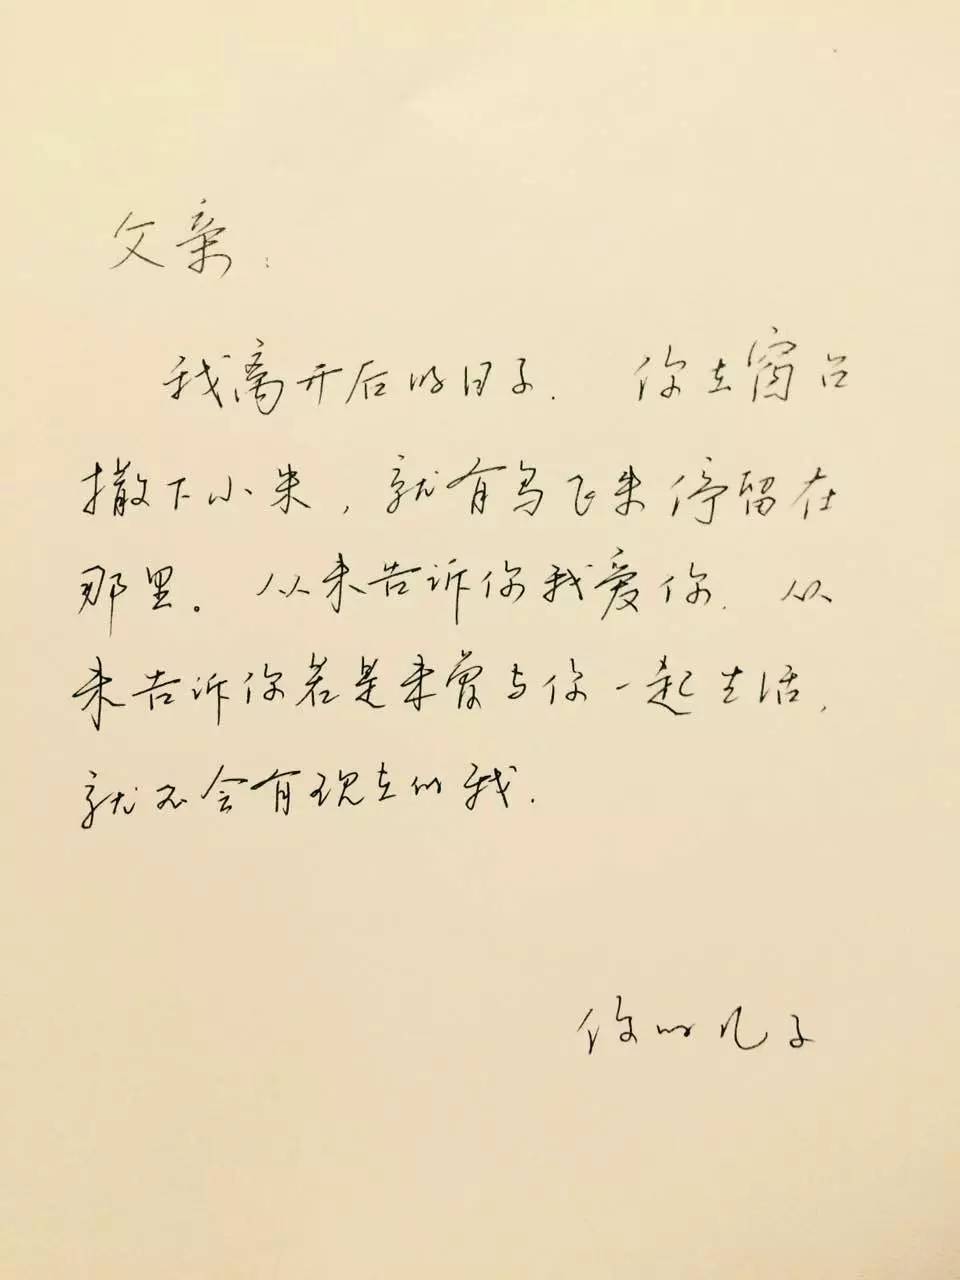 父亲：
我离开后的日子. 你在窗台
撒下小米，就有鸟飞来停留在
那里。从未告诉你我爱你. 从
未告诉你若是未曾与你一起生活，
就不会有现在的我.
你的儿子